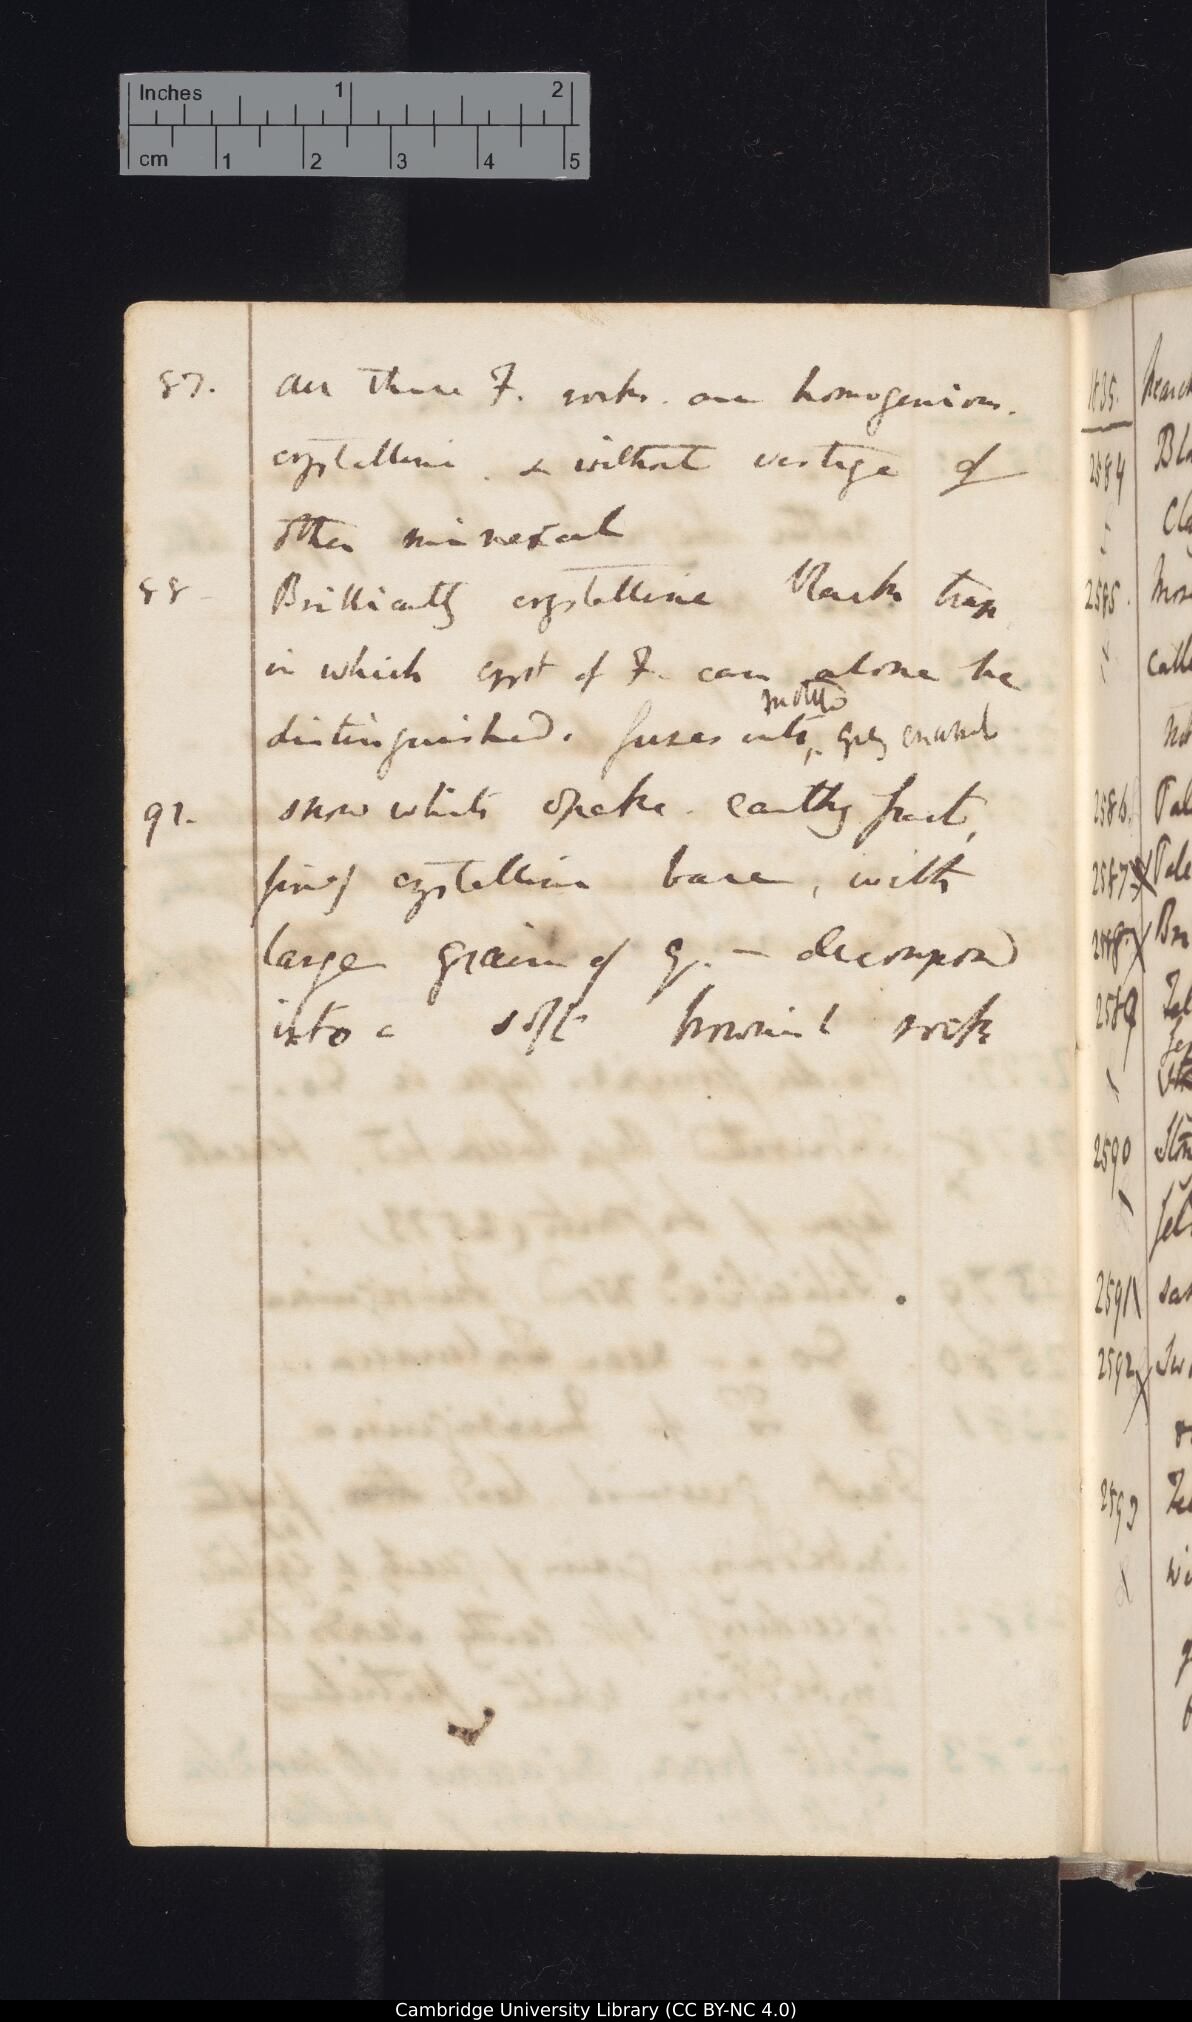 Inches 1 2
cm 1 2 3 4 5
87. All these F. rocks are homogenious.
crystalline & without vestige of
other mineral
88 Brilliantly crystalline black trap
in which cryst of F. can alone be
mottled
distinguished. fuses into grey enamel
91. Snow white opake. earthy fract,
finely crystalline base, with
large grains of q. — decomposed
into a soft brownish rock
1835.
2584
2585.
2586.
2587
2588
2589
2590
2591
2592
2593
Cambridge University Library (CC BY-NC 4.0)